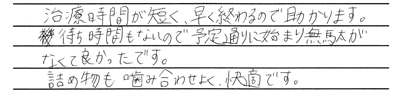 治療時間が短く、早く終わるので助かります。
待ち時間もないので予定通りに始まり無駄が
なくて良かったです。
詰め物も噛み合わせよく、快適です。